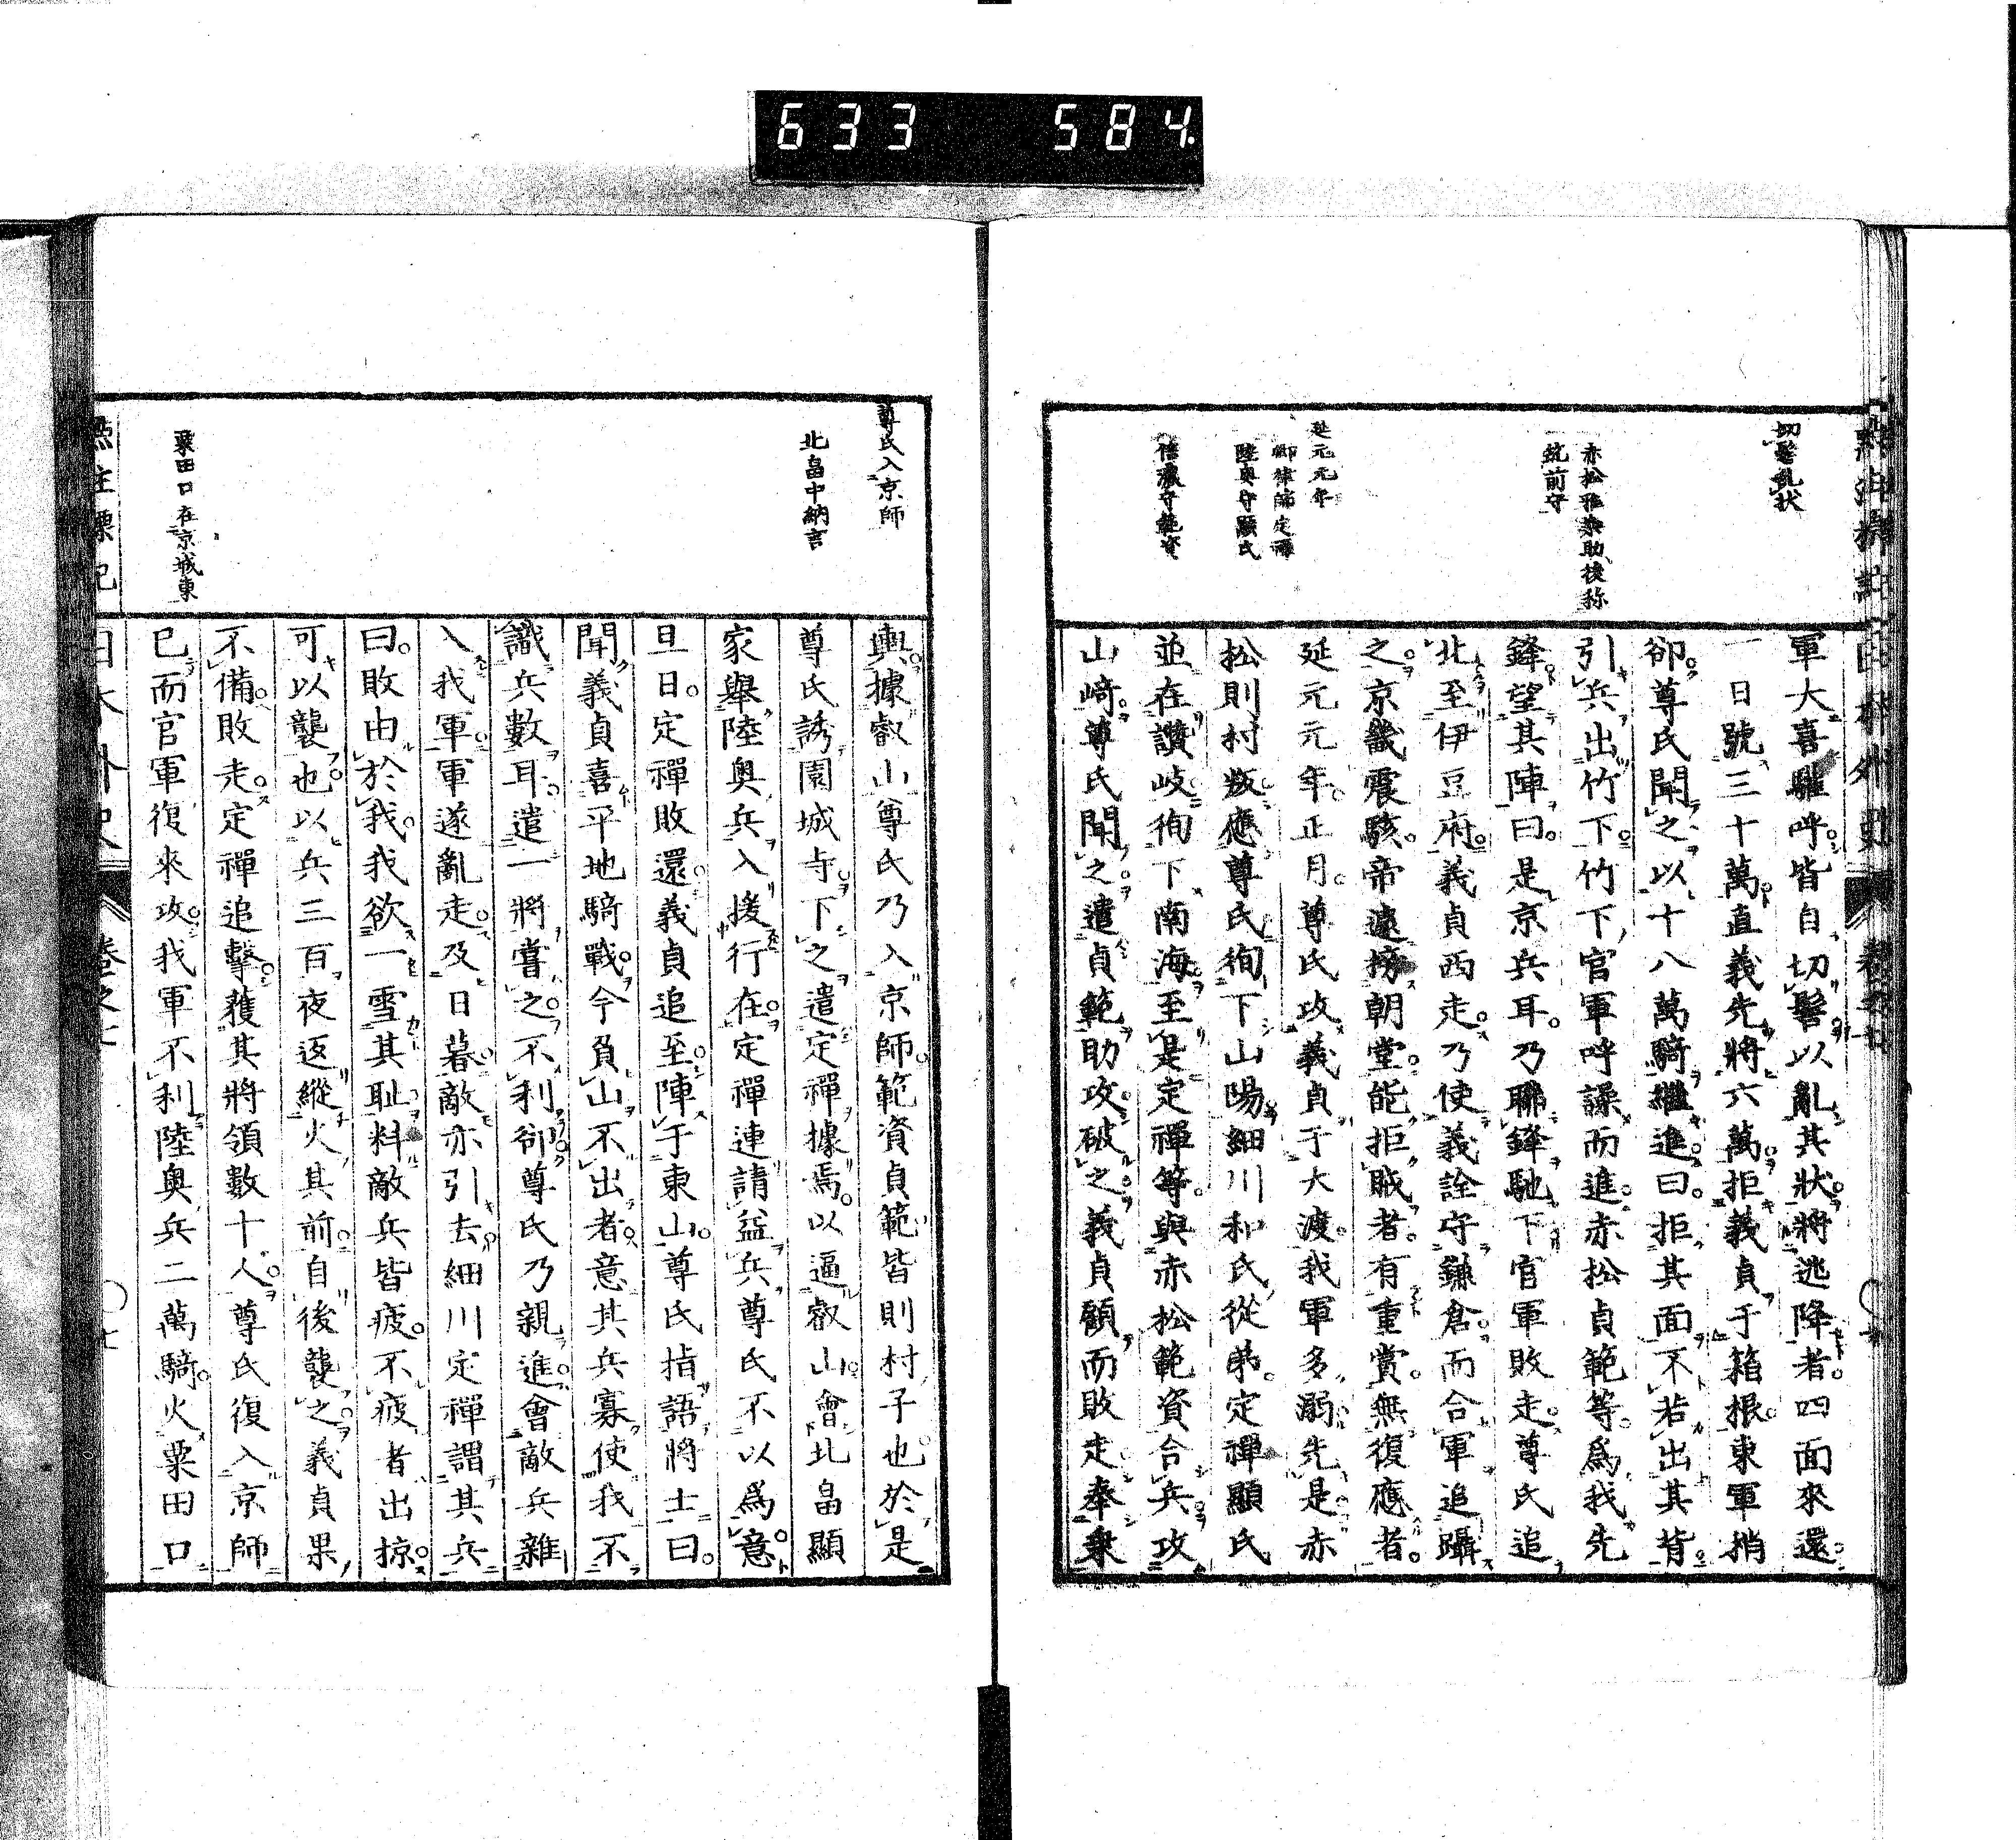 633 584
切髻亂狀
赤松雅樂助後称
筑前守
延元元年
卿律師定禪
陸奥守顯氏
信濃守範資
軍大喜騅呼皆自切髻以亂其狀將逃降者四面來還
一日號三十萬直義先將六萬拒義貞于箱根東軍捎
卻尊氏聞之以十八萬騎繼進曰拒其面不若出其背
引兵出竹下竹下官軍呼譟而進赤松貞範等爲我先
鋒望其陣曰是京兵耳乃聯鋒馳下官軍敗走尊氏追
北至伊豆府義貞西走乃使義詮守鎌倉而合軍追躡
之京畿震駭帝遽榜朝堂能拒賊者有重賞無復應者
延元元年正月尊氏攻義貞于大渡我軍多溺先是赤
松則村叛應尊氏徇下山陽細川和氏從弟定禪顯氏
並在讚岐徇下南海至是定禪等與赤松範資合兵攻
山﨑尊氏聞之遣貞範助攻破之義貞顧而敗走奉乘
尊氏入京師
北畠中納言
粟田口在京城東
輿據叡山尊氏乃入京師範資貞範皆則村子也於是
尊氏誘園城寺下之遣定禪據焉以逼叡山會北畠顯
家舉陸奥兵入援行在定禪連請益兵尊氏不以爲意
旦日定禪敗還義貞追至陣于東山尊氏指語將士曰
聞義貞喜平地騎戰今負山不出者意其兵寡使我不
識兵數耳遣一將嘗之不利卻尊氏乃親進會敵兵雜
入我軍軍遂亂走及日暮敵亦引去細川定禪謂其兵
曰敗由於我我欲一雪其耻料敵兵皆疲不疲者出掠
可以襲也以兵三百夜返縱火其前自後襲之義貞果
不備敗走定禪追擊獲其將領數十人尊氏復入京師
已而官軍復來攻我軍不利陸奥兵二萬騎火粟田口